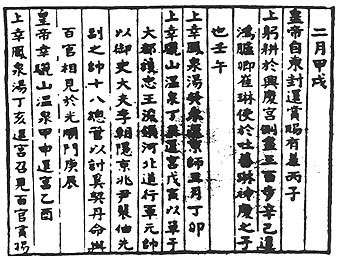 二月甲戌
皇帝自東封還賞賜有差丙子
上躬耕於興慶宮側盡三百步辛己還
鴻臚卿崔琳使於吐蕃琳神慶之子
也壬午
上幸鳳泉湯癸未還京師三月丁卯
上幸驪山温泉丁亥還宮戊寅以單于
大都護忠王浚領河北道行軍元帥
以御史大夫李朝隱京兆尹裴伯先
副之帥十八總管以討奚契丹命與
百官相見於光順門庚辰
皇帝幸驪山温泉甲申還宮乙酉
上幸鳳泉湯丁亥還宮召見百官賞賜